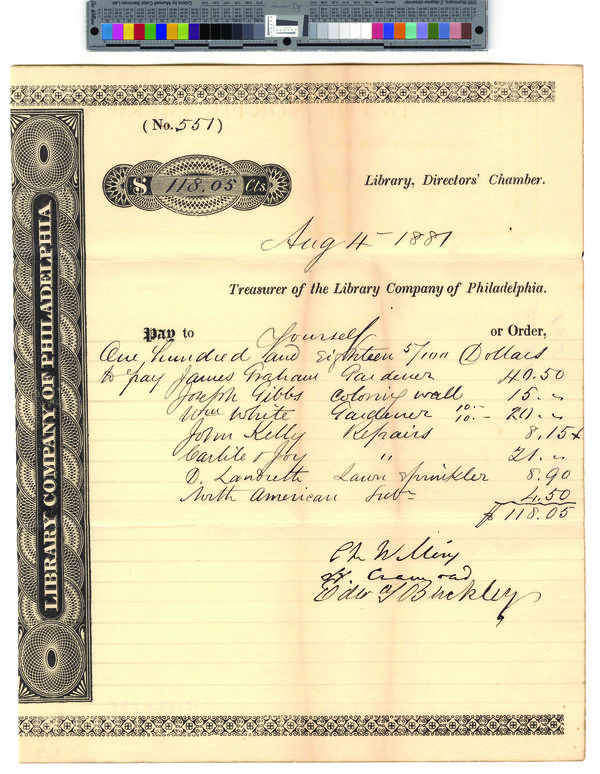 LIBRARY COMPANY OF PHILADELPHIA
(No. 551)
$ 118.05 Cts.
Library, Directors' Chamber.
Aug 4 1881
Treasurer of the Library Company of Philadelphia.
Pay to Yourself or Order,
One hundred and Eighteen 5/100 Dollars
to pay James Graham Gardener 40.50
Joseph Gibbs coloring wall 15.
Wm White Gardener 10.- 10.- 20.
John Kelly Repairs 8.15 x
Carlile & Joy " 21.
D. Landreth Lawn Sprinkler 8.90
North American Subn 4.50
$ 118.05
Ch Willing
Edw Y Buckley